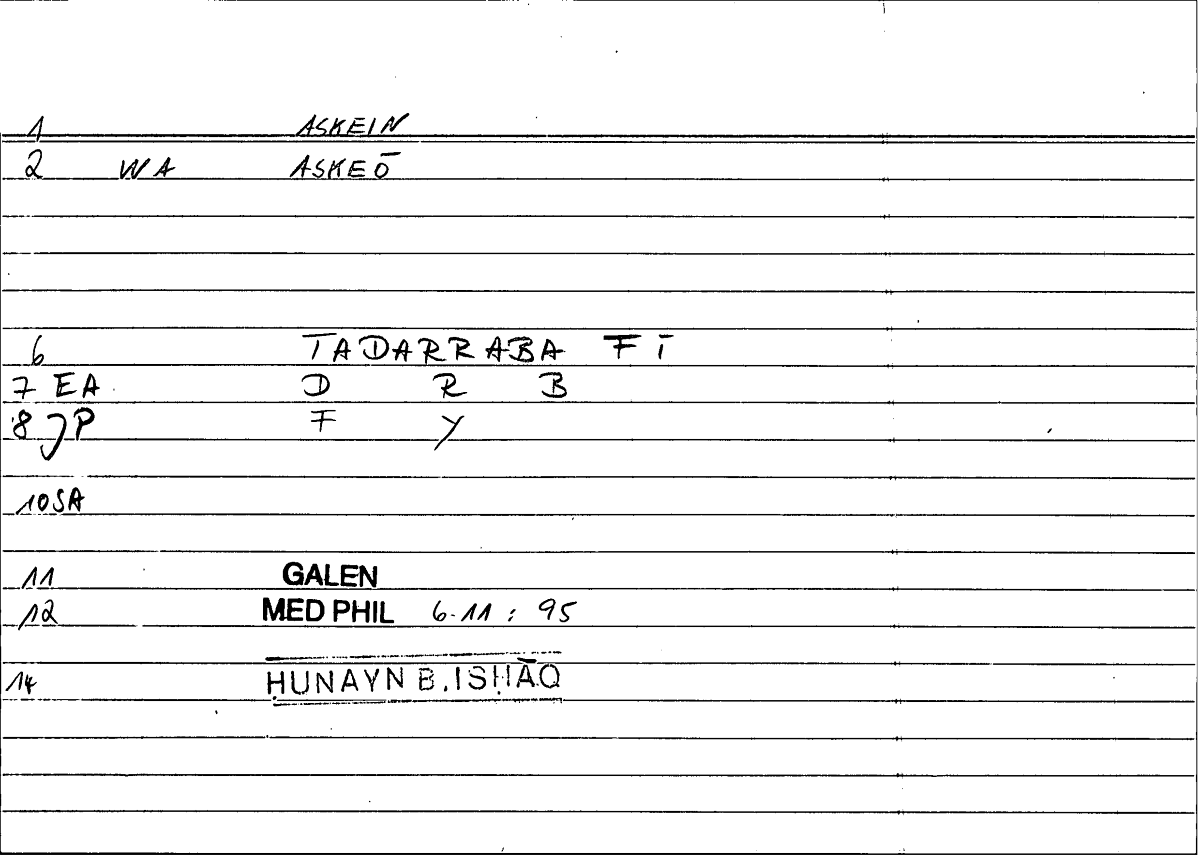 1 ASKEIN
2 WA ASKEŌ
6 TADARRABA FĪ
7 EA D R B
8 JP F Y
10 SA
11 GALEN
12 MED PHIL 6-11 : 95
14 ḤUNAYN B. ISḤĀQ